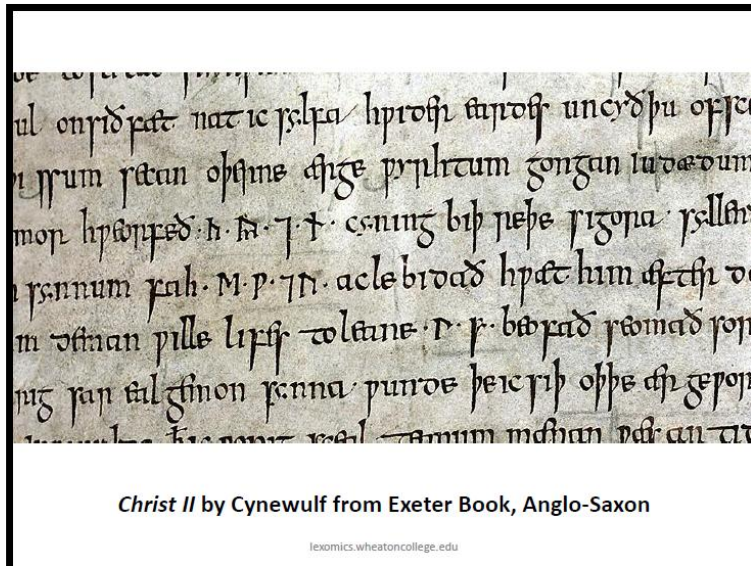 ul onsiðfæt nat ic sylfa hƿider eardes uncyðþu ofsce
ssum secan oþerne ærge ƿyrhtum gongan iudædum
mor hƿeorfeð ·ᚳ·ᚣ·⁊·ᚾ· cyning biþ reþe sigora syllen
synnum fah ·ᛖ·ᚹ·⁊ᚢ· acle bidað hƿæt him æfter
m deman ƿille lifes toleane ·ᛚ·ᚠ· beofað seomað sor
rig sar eal gemon synna ƿunde þeic siþ oþþe ær geƿor
Christ II by Cynewulf from Exeter Book, Anglo-Saxon
lexomics.wheatoncollege.edu